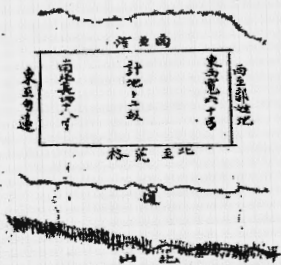 南至河
西至
東西寬六十弓
計地十二畝
南北長四十八弓
東至
北至荒格
道
北山